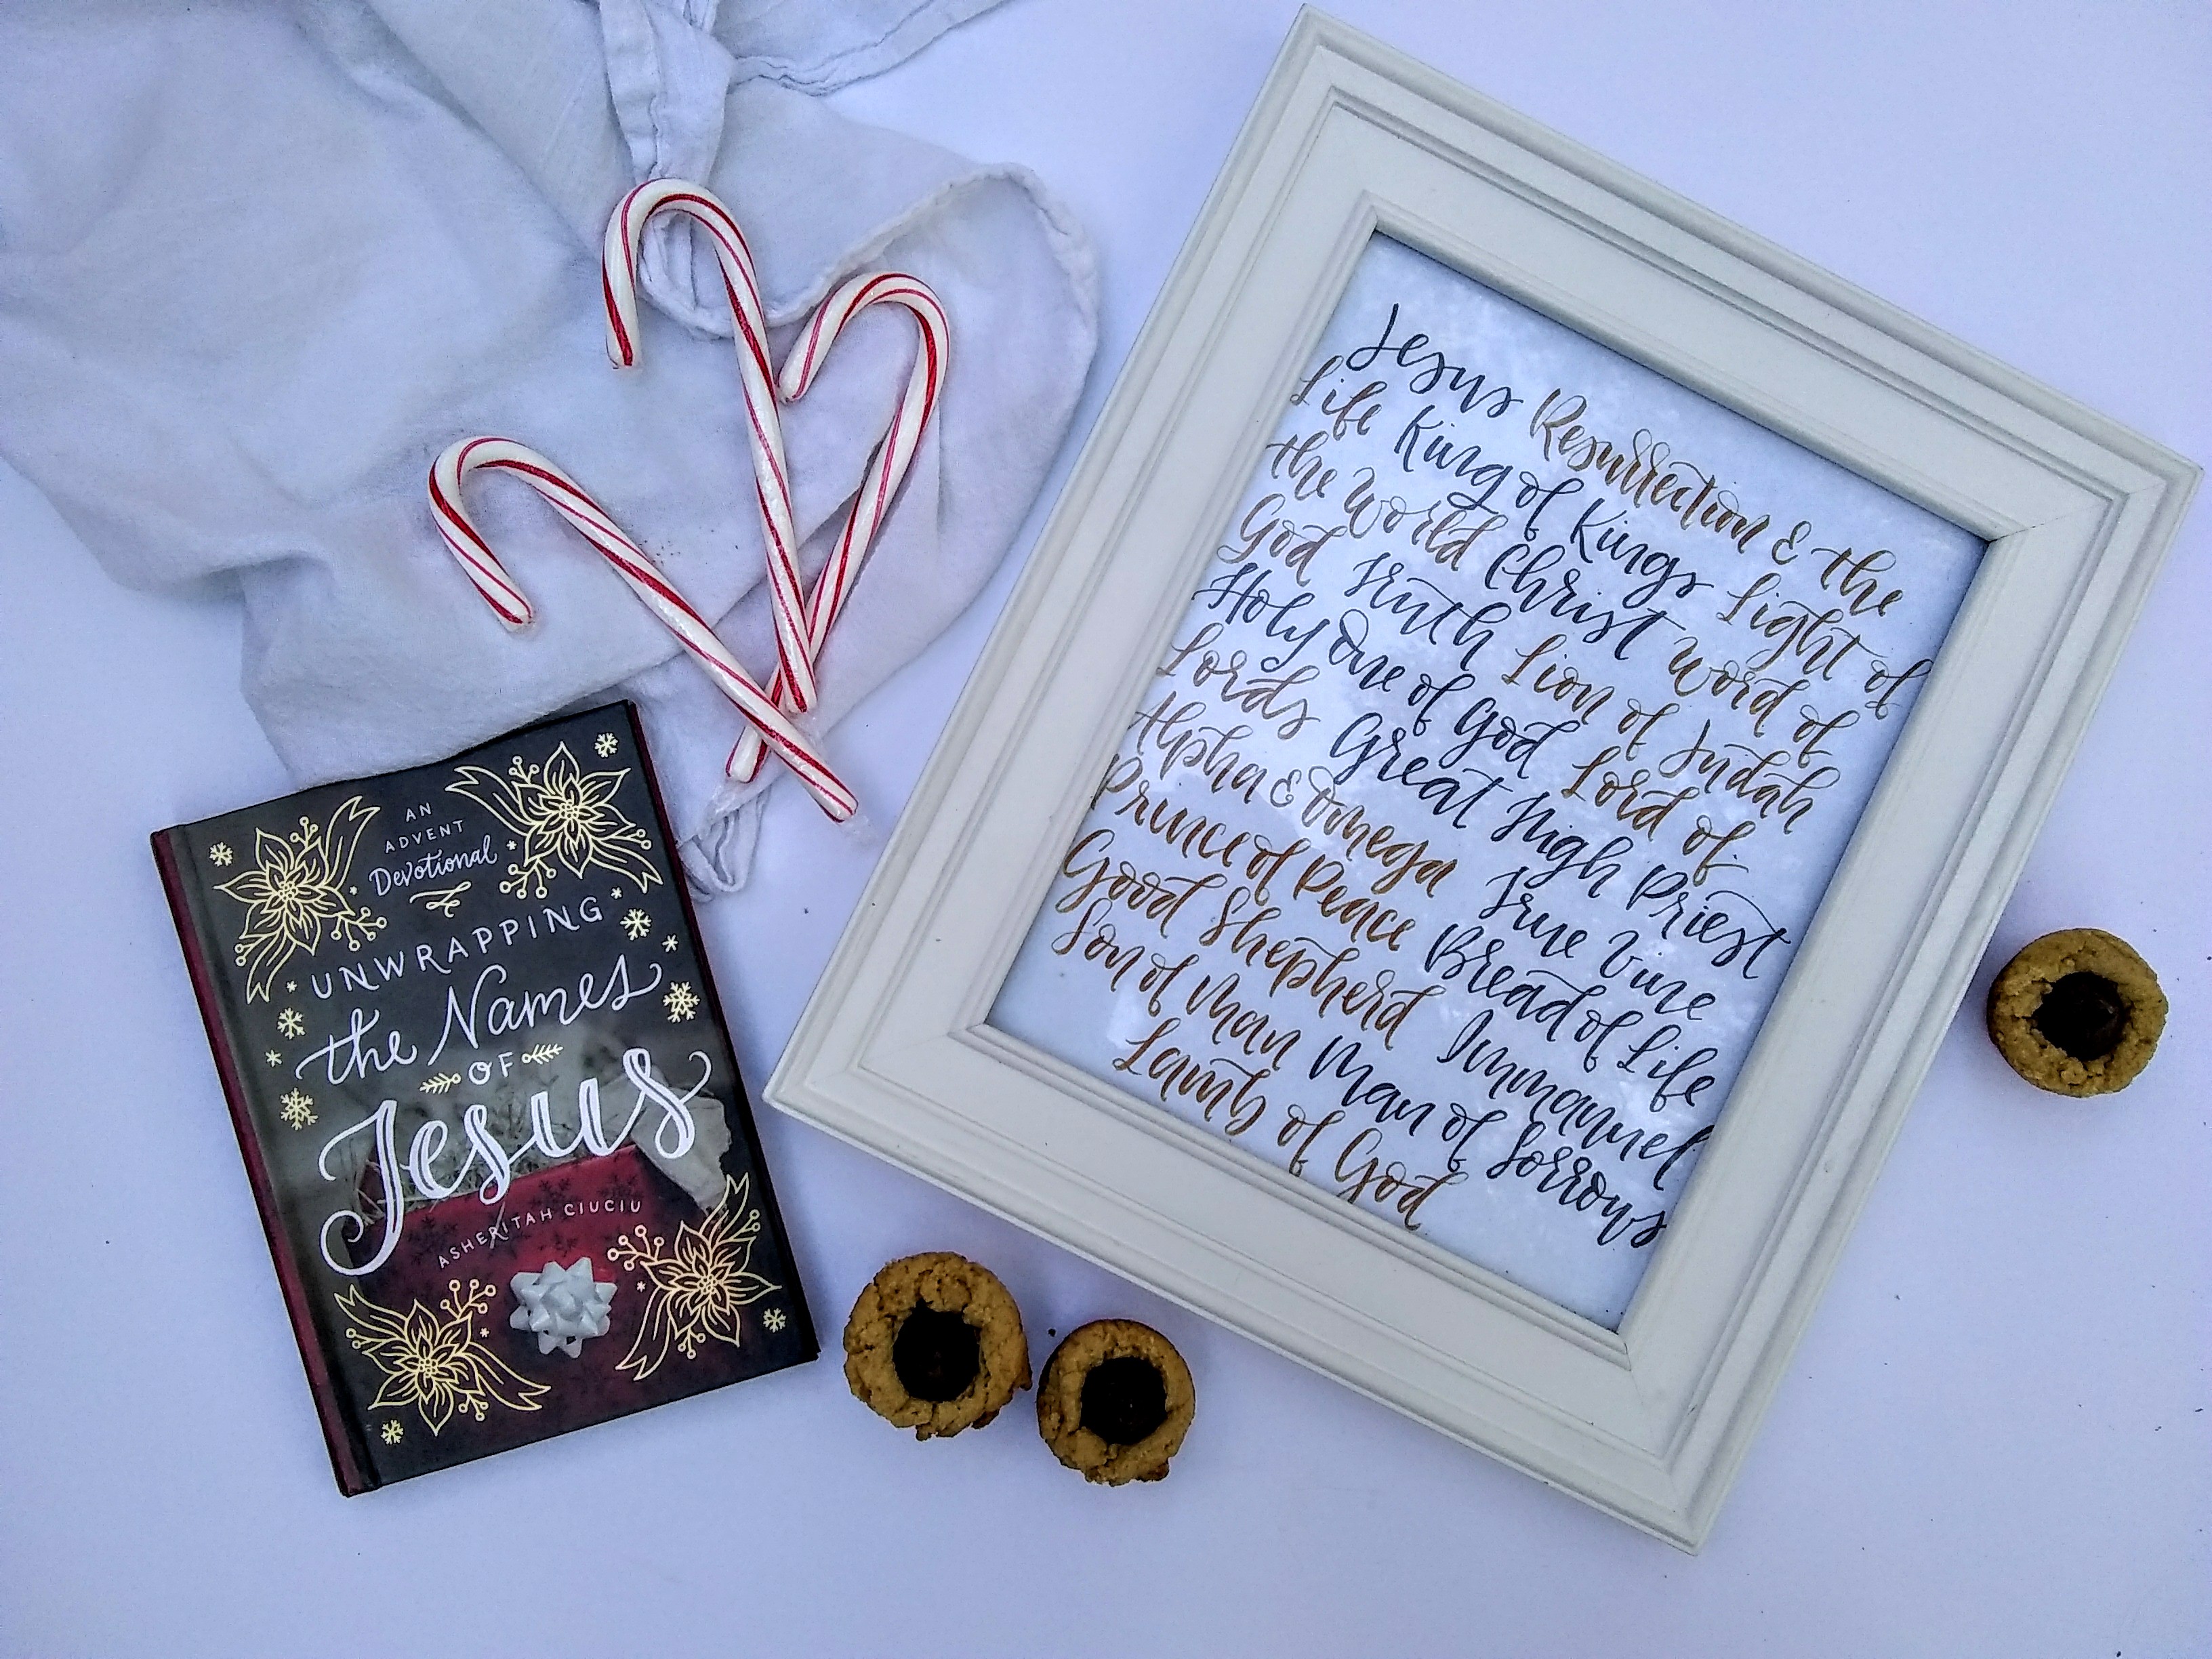 AN
ADVENT
Devotional
UNWRAPPING
the Names
OF
Jesus
ASHERITAH CIUCIU
Jesus Resurrection & the
Life King of Kings Light of
the World Christ Word of
God Truth Lion of Judah
Holy One of God Lord of
Lords Great High Priest
Alpha & Omega True Vine
Prince of Peace Bread of Life
Good Shepherd Immanuel
Son of Man Man of Sorrows
Lamb of God